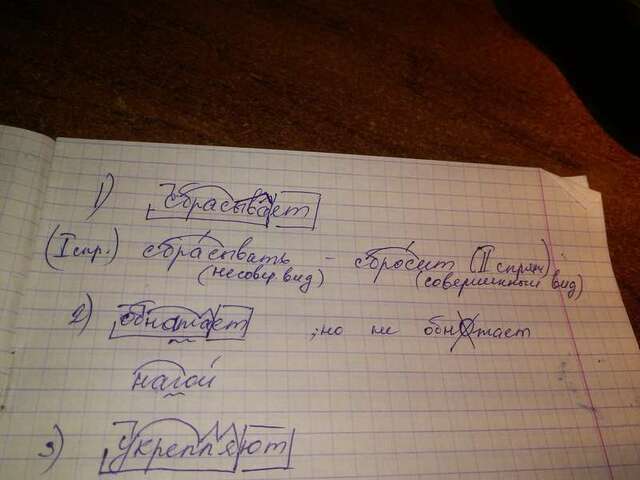 1) сбрасывает
(I спр.) сбрасывать - сбросит (II спряж)
(несовер. вид) (совершенный вид)
2) обнотает ; но не обнотает
нагой
3) укрепляют